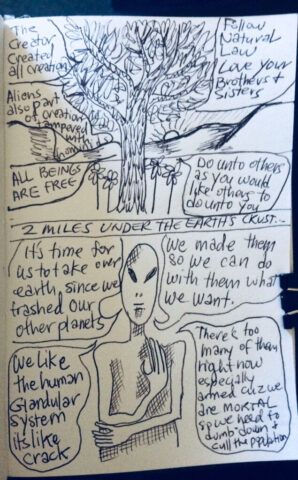 The
Creator
Created
all creation
Follow
Natural
Law
Love your
Brothers &
Sisters
Aliens
also part
of creation
tampered
with
ALL BEINGS
ARE FREE
Do unto others
as you would
like others to
do unto you
2 MILES UNDER THE EARTH'S CRUST...
It's time for
us to take over
earth, since we
trashed our
other planets
We made them
so we can do
with them what
we want.
We like
the human
Glandular
system
its like
crack
There's too
many of them
right now
especially
armed cuz we
are MORTAL
so we need to
dumb down &
cull the population